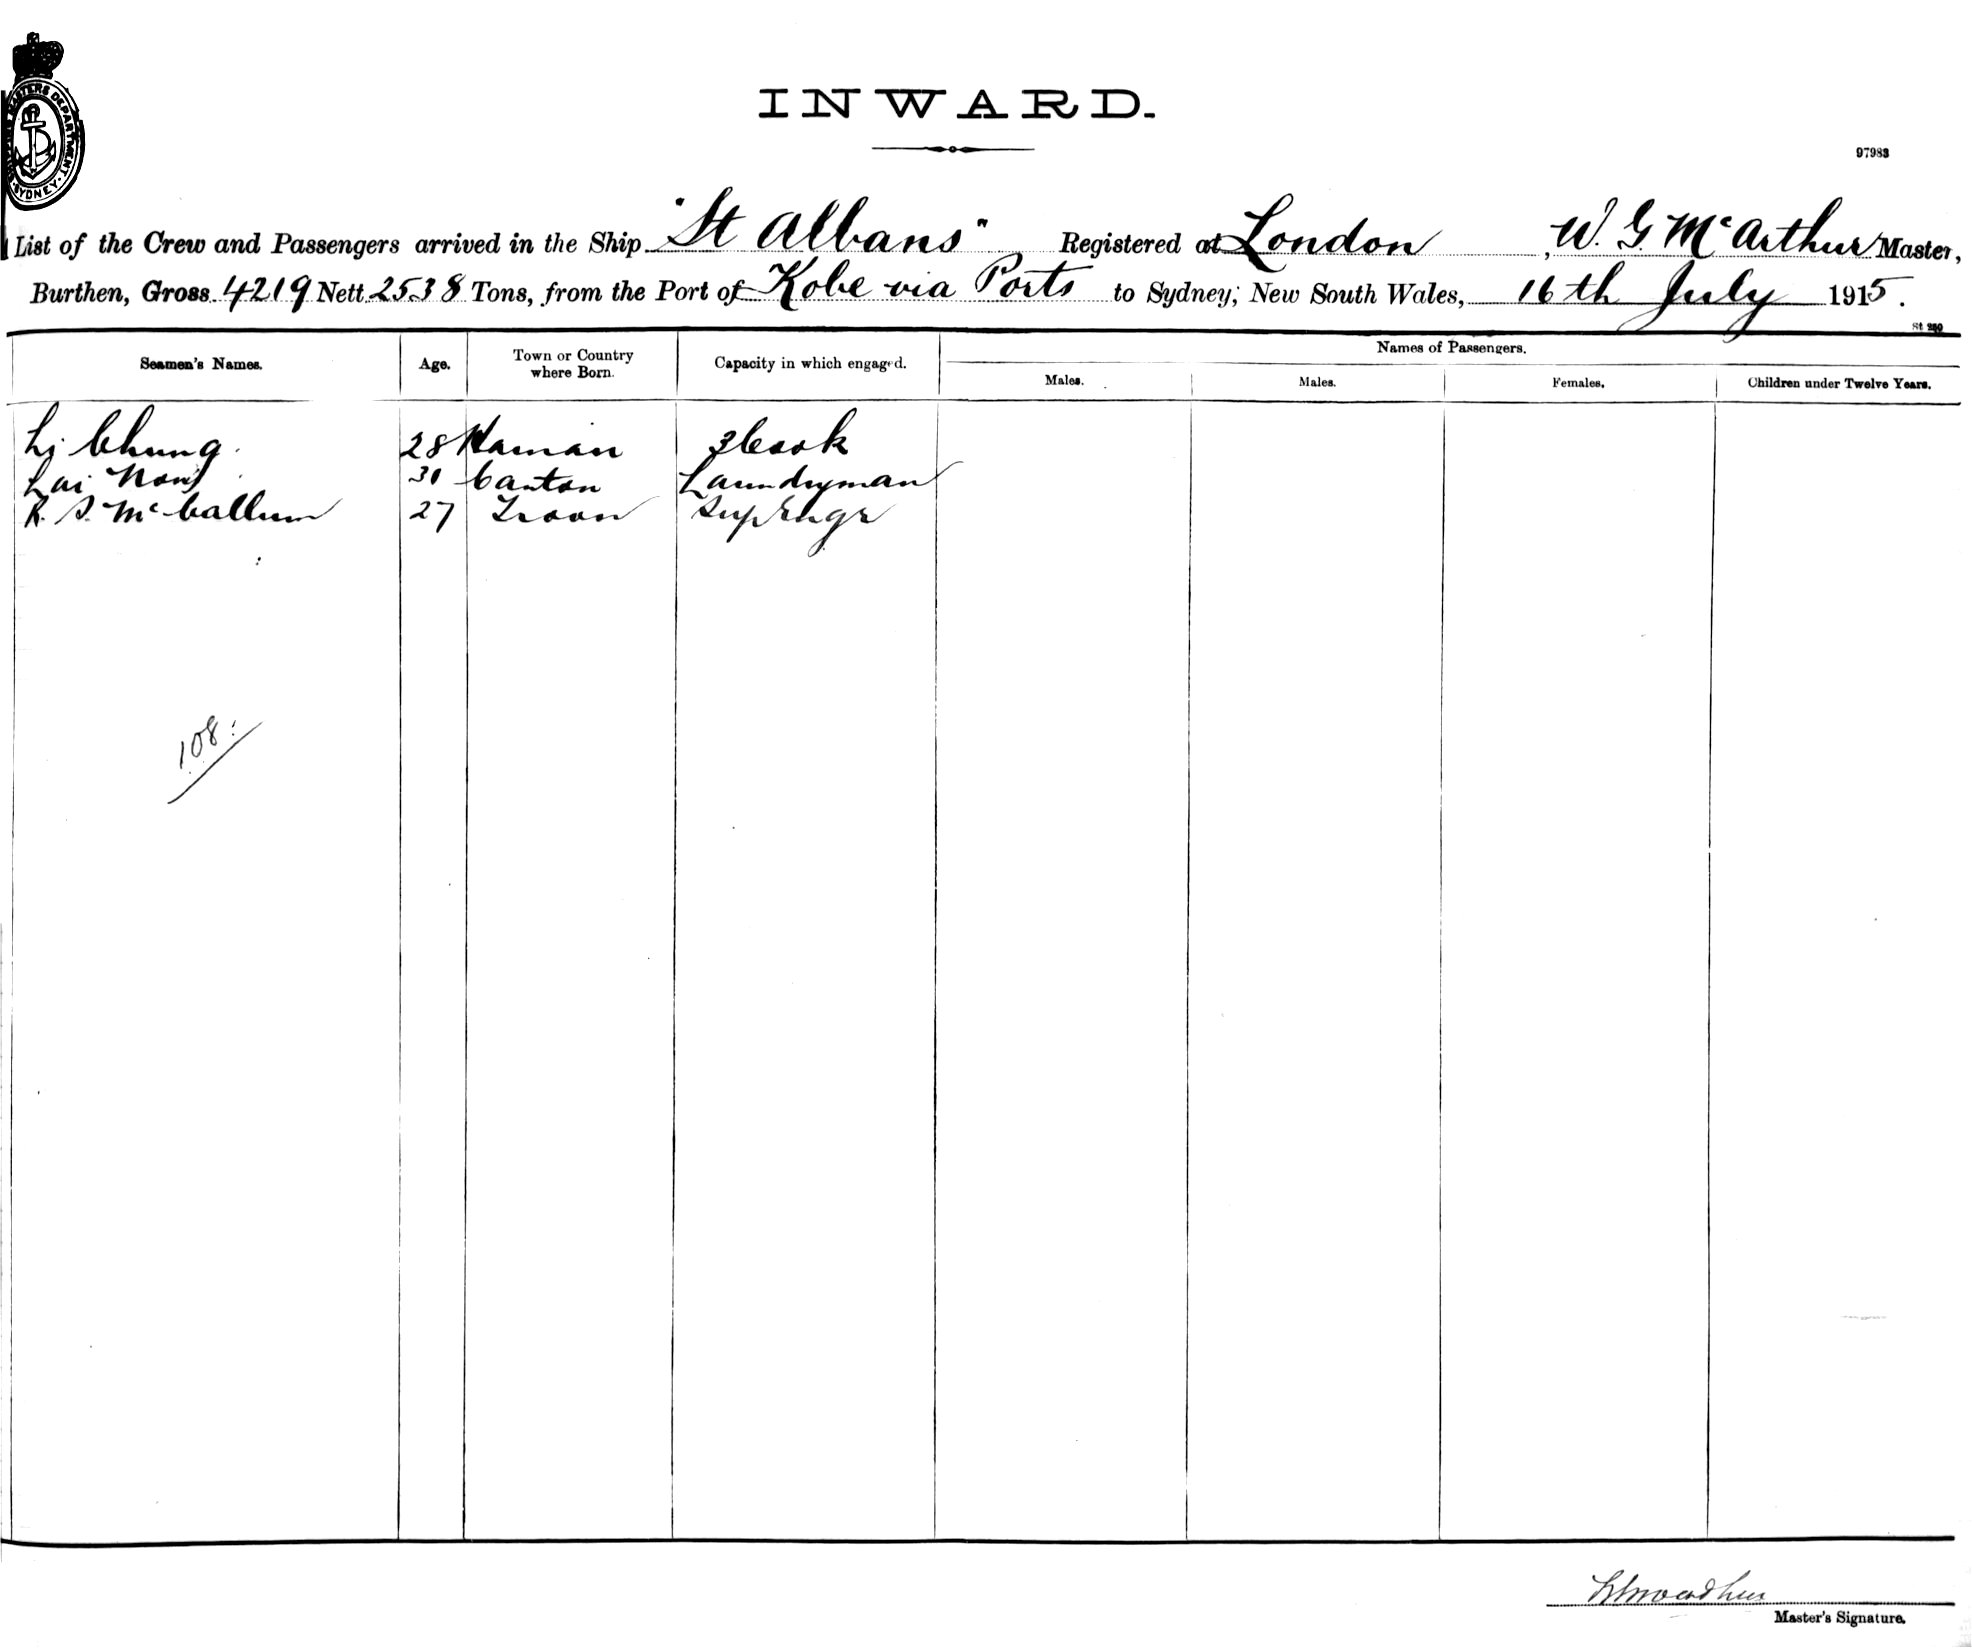 INWARD.
97983
List of the Crew and Passengers arrived in the Ship "St Albans" Registered at London, W. G. McArthur Master,
Burthen, Gross 4219 Nett 2538 Tons, from the Port of Kobe via Ports to Sydney, New South Wales, 16th July 1915.
St 260
Seamen's Names. Age. Town or Country where Born. Capacity in which engaged. Names of Passengers.
Males. Males. Females. Children under Twelve Years.
Li Chung 28 Haman 3 Cook
Lai 30 Canton Laundryman
R. S. McCallum 27 Troon Sup Engr
108
Master's Signature.
MASTERS DEPARTMENT
SYDNEY